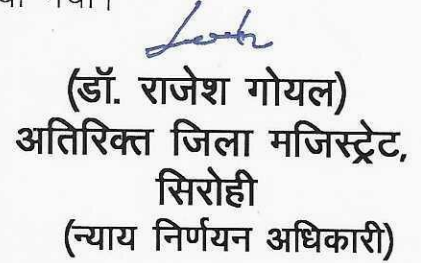 गया।
(डॉ. राजेश गोयल)
अतिरिक्त जिला मजिस्ट्रेट,
सिरोही
(न्याय निर्णयन अधिकारी)